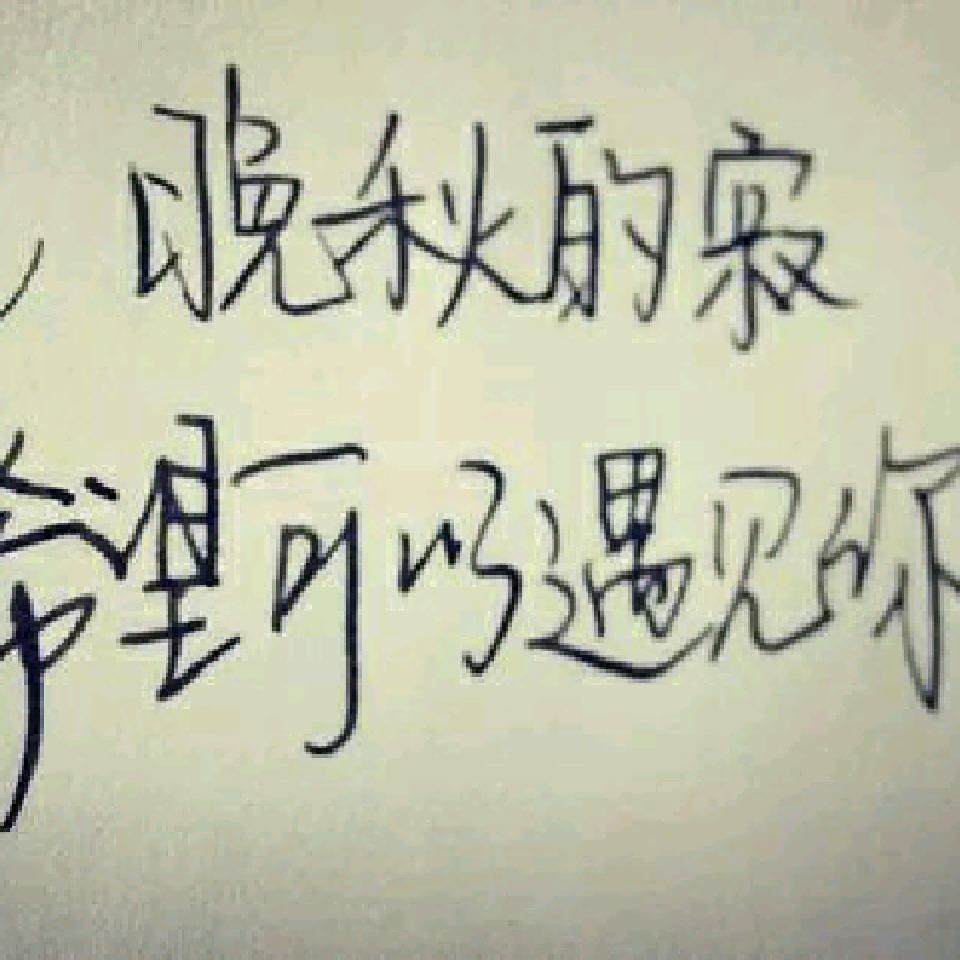 ，晚秋的寂
希望可以遇见你